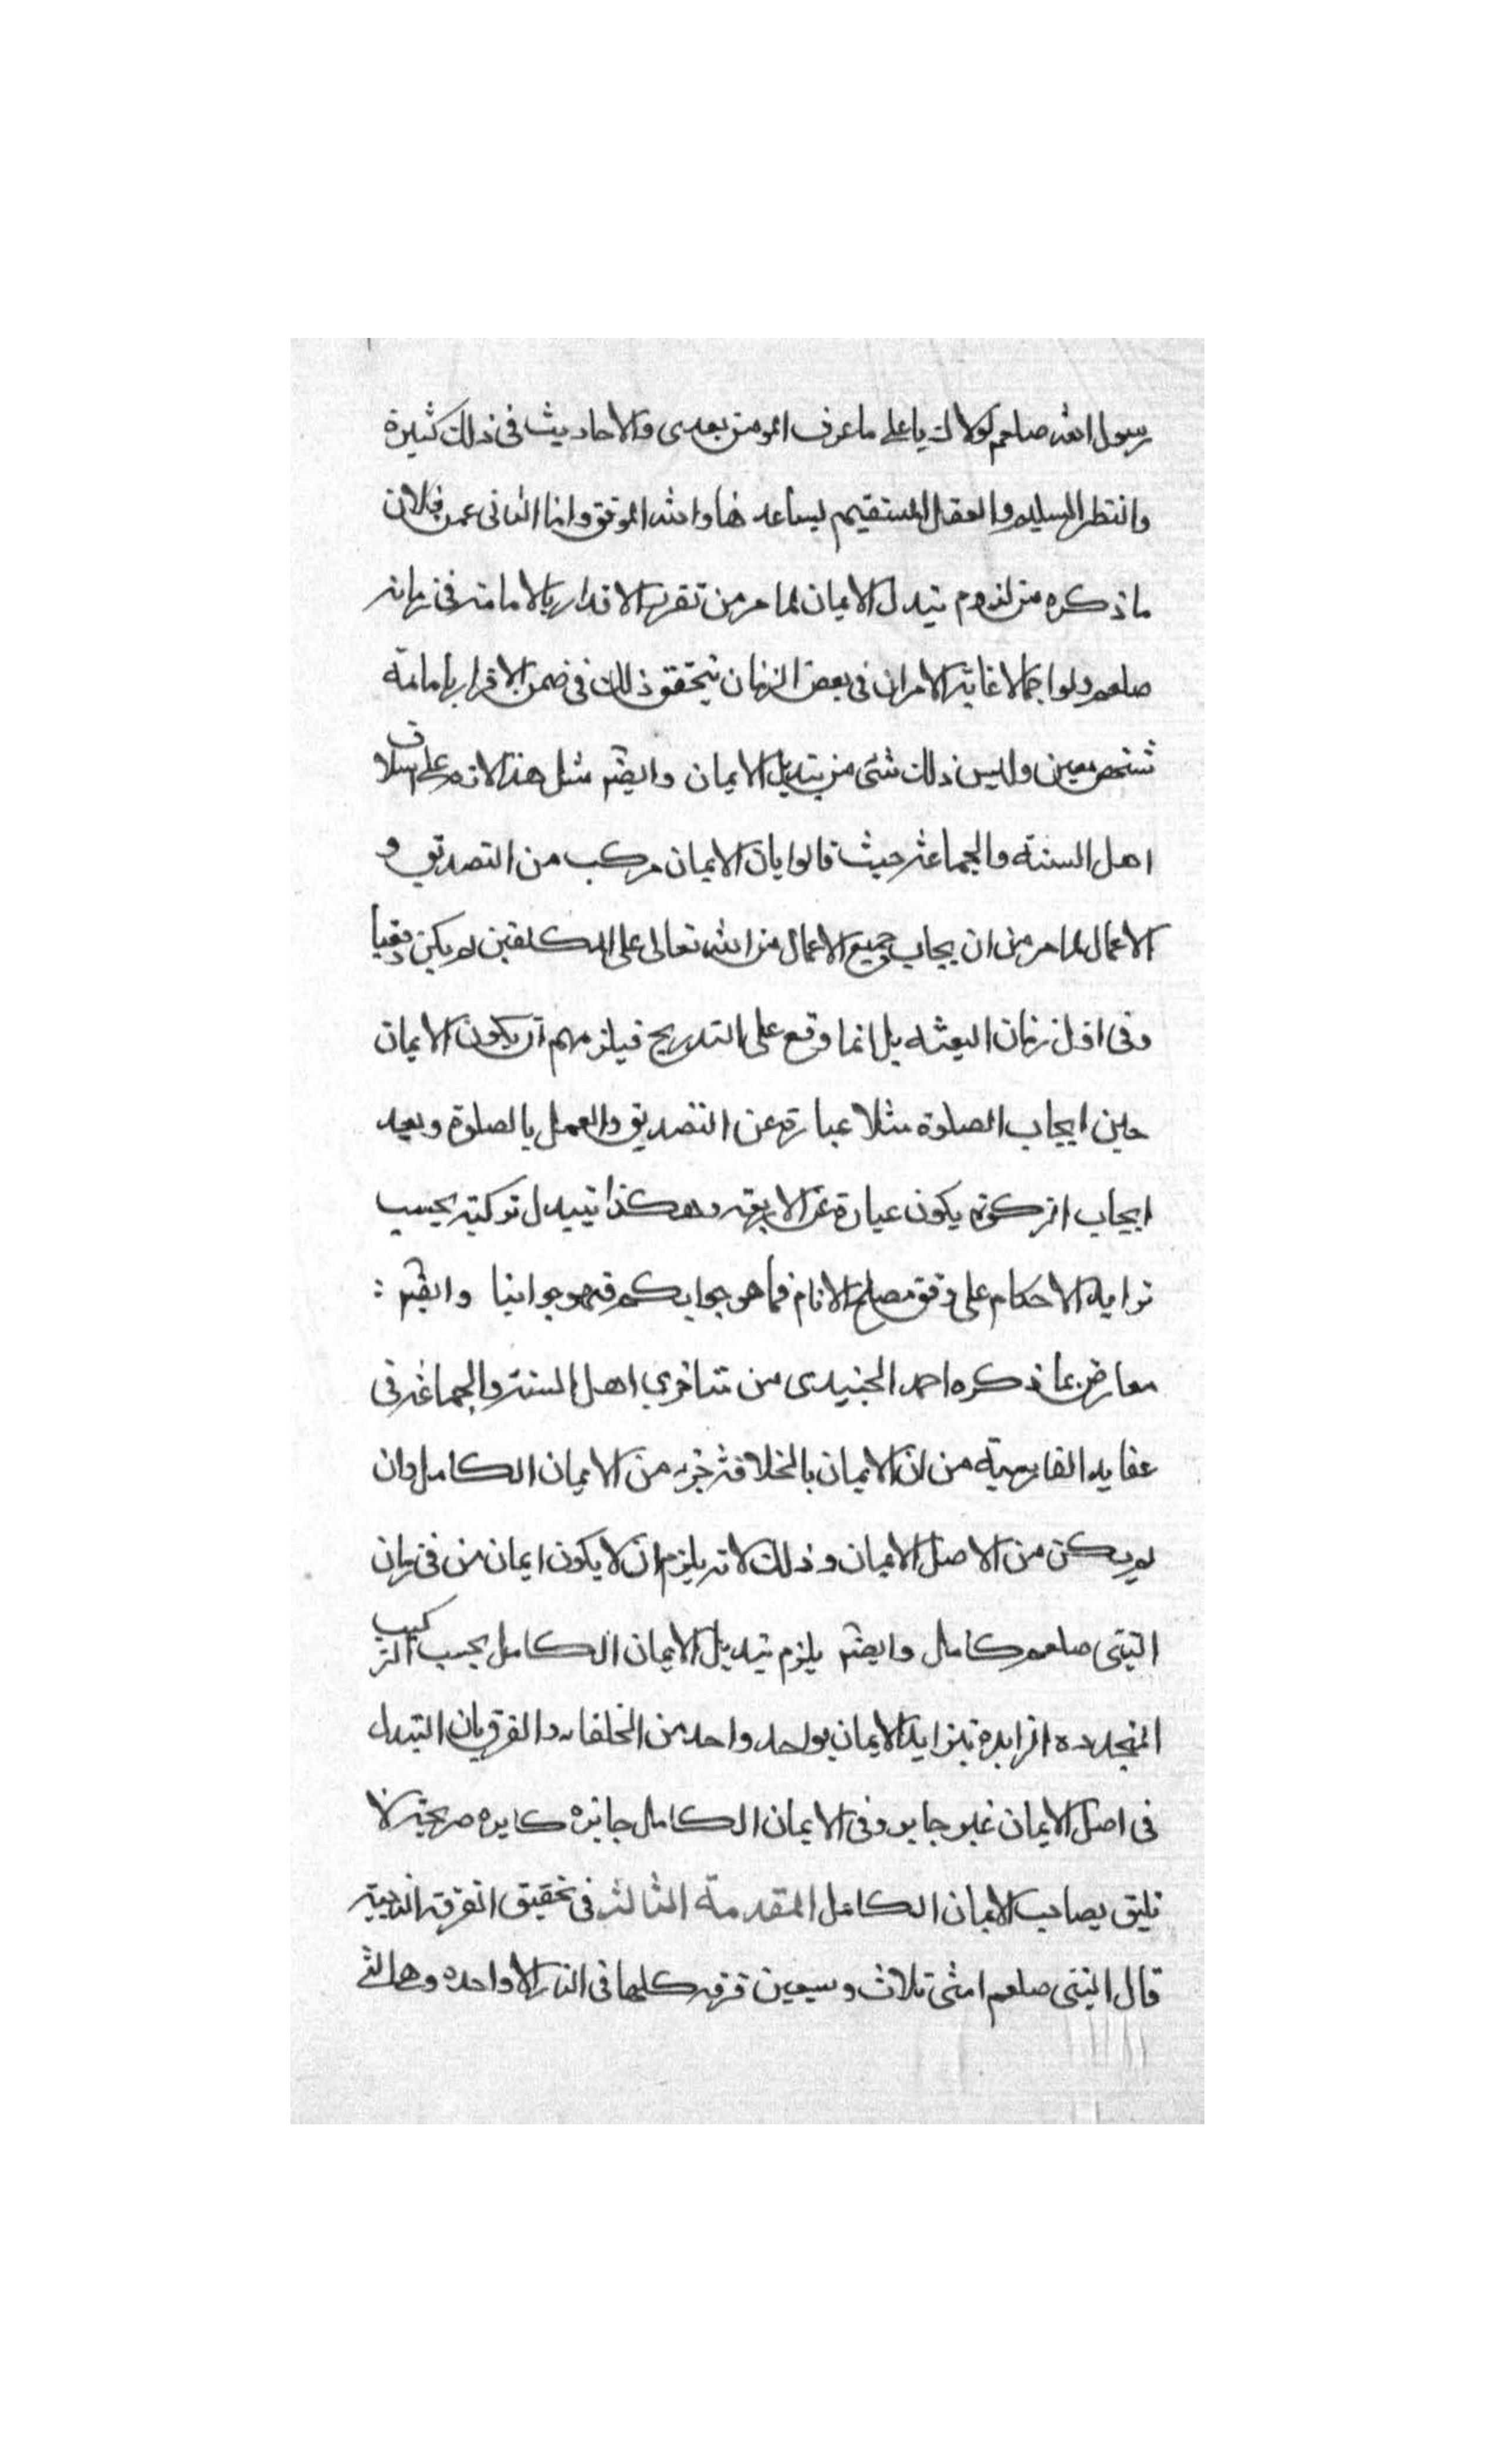 رسول الله صلعم لولاك يا على ما عرف المومن بعدى والاحاديث فى ذلك كثيرة
والنظر السليم والعقل المستقيم يساعدها والله الموفق واما الثانى فلان
ما ذكره من لزوم تبدل الايمان لما مر من تقرير الاقرار بالامامة فى زمانه
صلعم ولو اجمالا غاية الامر ان فى بعض الزمان يتحقق ذلك فى ضمن الاقرار بامامة
شخص معين وليس ذلك شئ من تبديل الايمان وايضا مثل هذا لازم على اسلاف
اهل السنة والجماعة حيث قالوا بان الايمان مركب من التصديق و
الاعمال لما مر من ان يجاب جميع الاعمال من الله تعالى على المكلفين لم يكن دفعيا
وفى اول زمان البعثه بل انما وقع على التدريج فيلزمهم ان يكون الايمان
حين ايجاب الصلوة مثلا عبارة عن التصديق والعمل بالصلوة وبعد
ايجاب الزكوة يكون عبارة عن الاربعة وهكذا تيبدل تركيبه بحسب
تزايد الاحكام على وفق مصلح الانام فما هو جوابكم فهو جوابنا وايضا :
معارض بما ذكره احمد الجنيدى من متاخرى اهل السنة والجماعة فى
عقايد الفارسية من ان الايمان بالخلافة جزء من الايمان الكامل وان
لم يكن من الاصل الايمان وذلك لانه يلزم ان لا يكون ايمان من فى زمان
النبى صلعم كامل وايضا يلزم تبديل الايمان الكامل بحسب التركيب
المتجدده الزايدة بتزايد الايمان بواحد واحد من الخلفاء والفرق بان التبدل
فى اصل الايمان غير جايز وفى الايمان الكامل جايزه كابره صريحة لا
تليق بصاحب الايمان الكامل المقدمة الثالثة فى تحقيق الفرقة الناجية
قال النبى صلعم امتى ثلاث وسبعين فرقه كلها فى النار الا واحده وهى التى